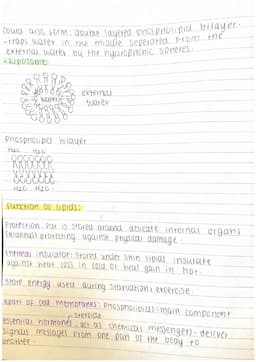 could also form: double layered phospholipid bilayer.
-traps water in the middle seperated from the
external water by the hydrophobic spheres.
-Liposome:
water
external
water
Phospholipid bilayer
H2O H2O
H2O H2O
Function of lipids:
Protection: Fat is stored around delicate internal organs
(kidneys) protecting against physical damage
Thermal insulator: stored under skin lipids insulate
against heat loss in cold or heat gain in hot.
Store energy: used during starvation & exercise
Part of cell membranes: phospholipids: main component
steroids
essential hormones: act as chemical messengers: deliver
signals messages from one part of the body to
another